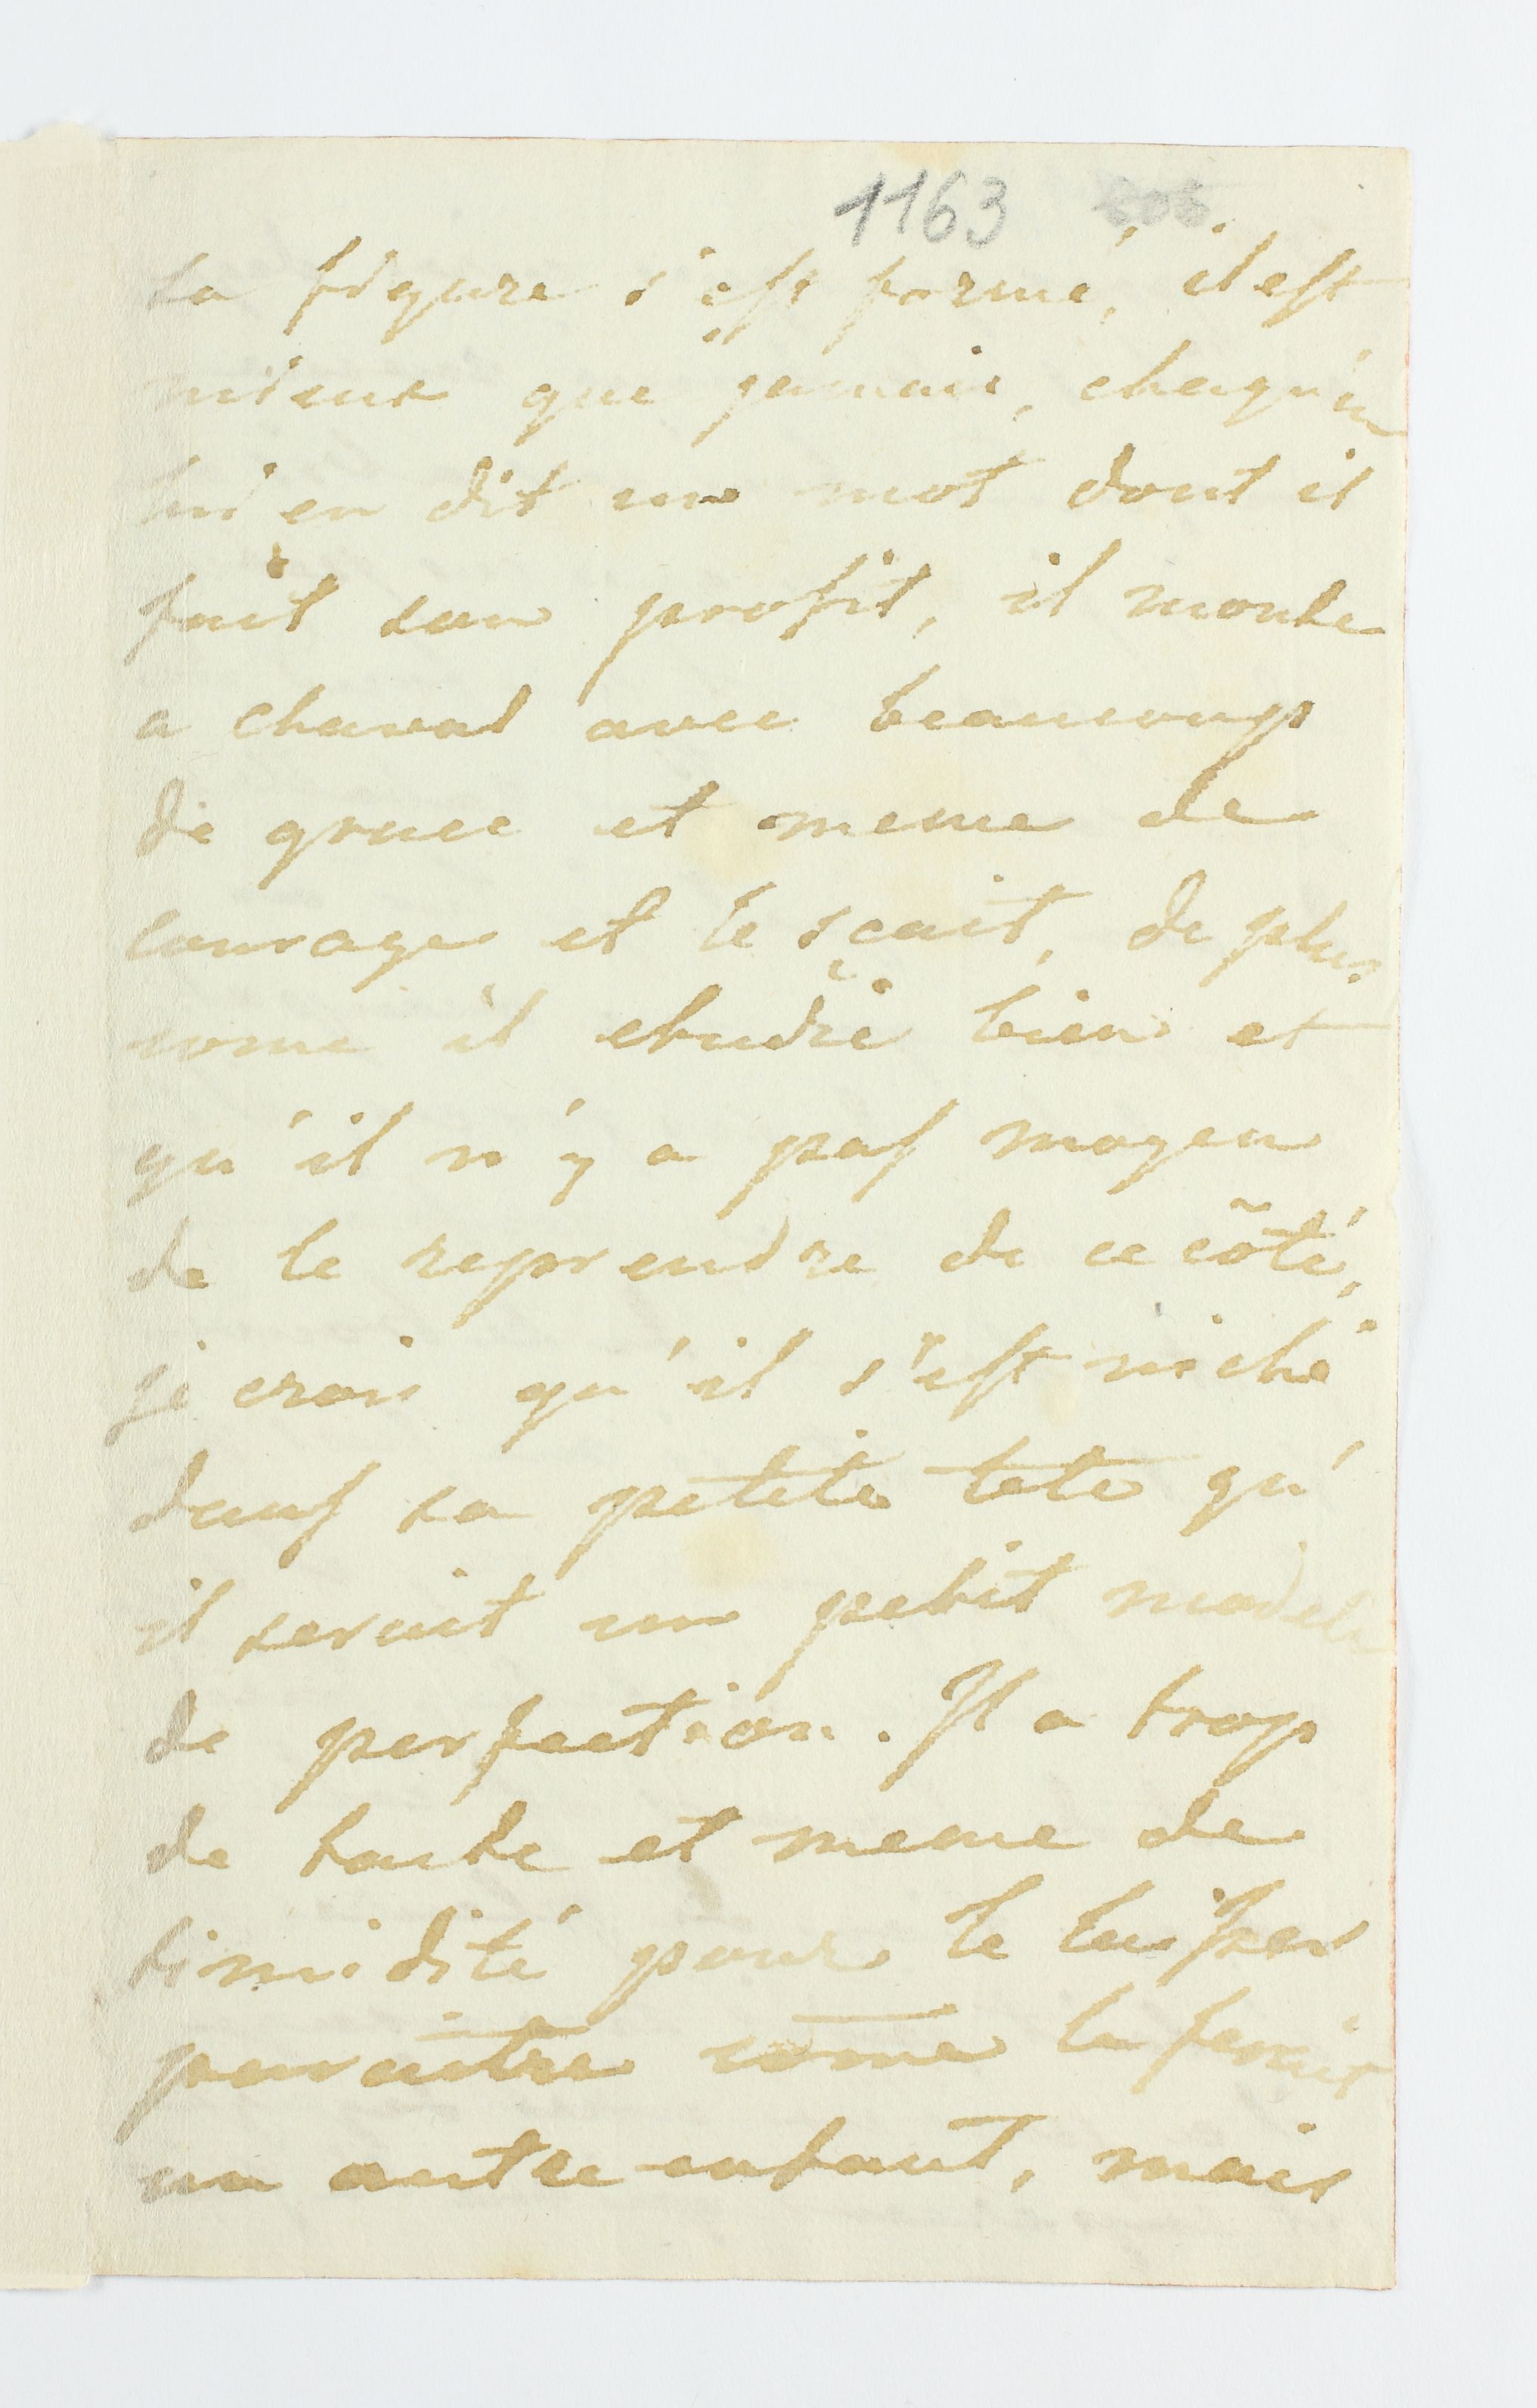 1163
sa figure s'est formé, il est
mieux que jamais, chaqu'un
lui en dit un mot dont il
fait son profit, il monte
a cheval avec beaucoup
de grace et meme de
courage et le sçait, de plus
come il etudie bien et
qu'il n'y a pas moyen
de le reprendre de ce côté,
je crois qu'il s'est niché
dans sa petite tete qu'
il seroit un petit modele
de perfection. Il a trop
de tacte et meme de
timidité pour le laisser
paraitre come le feroit
un autre enfant, mais